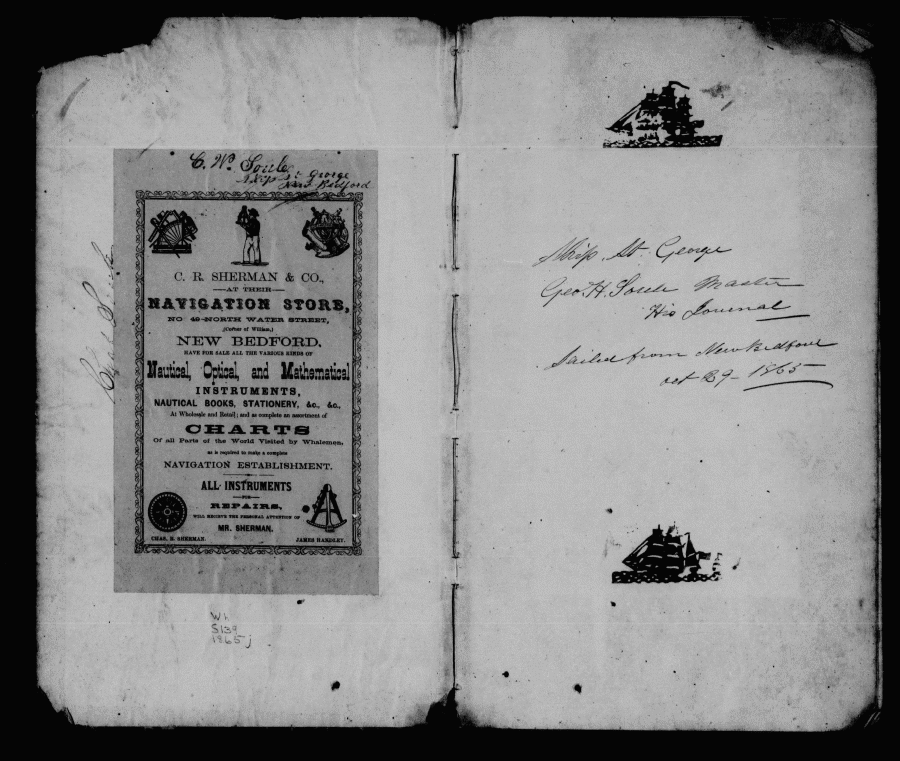 C. W. Soule
Ship St George
New Bedford
C. R. SHERMAN & CO.,
—AT THEIR—
NAVIGATION STORE,
NO 49 NORTH WATER STREET,
(Corner of William,)
NEW BEDFORD,
HAVE FOR SALE ALL THE VARIOUS KINDS OF
Nautical, Optical, and Mathematical
INSTRUMENTS,
NAUTICAL BOOKS, STATIONERY, &c., &c.,
At Wholesale and Retail; and as complete an assortment of
CHARTS
Of all Parts of the World Visited by Whalemen,
as is required to make a complete
NAVIGATION ESTABLISHMENT.
ALL INSTRUMENTS
—FOR—
REPAIRS,
WILL RECEIVE THE PERSONAL ATTENTION OF
MR. SHERMAN.
CHAS. R. SHERMAN.
JAMES HANDLEY.
Chas Soule
Wh
S139
1865j
Ship St. George
Geo. H. Soule Master
His Journal
Sailed from New Bedford
oct 29 - 1865